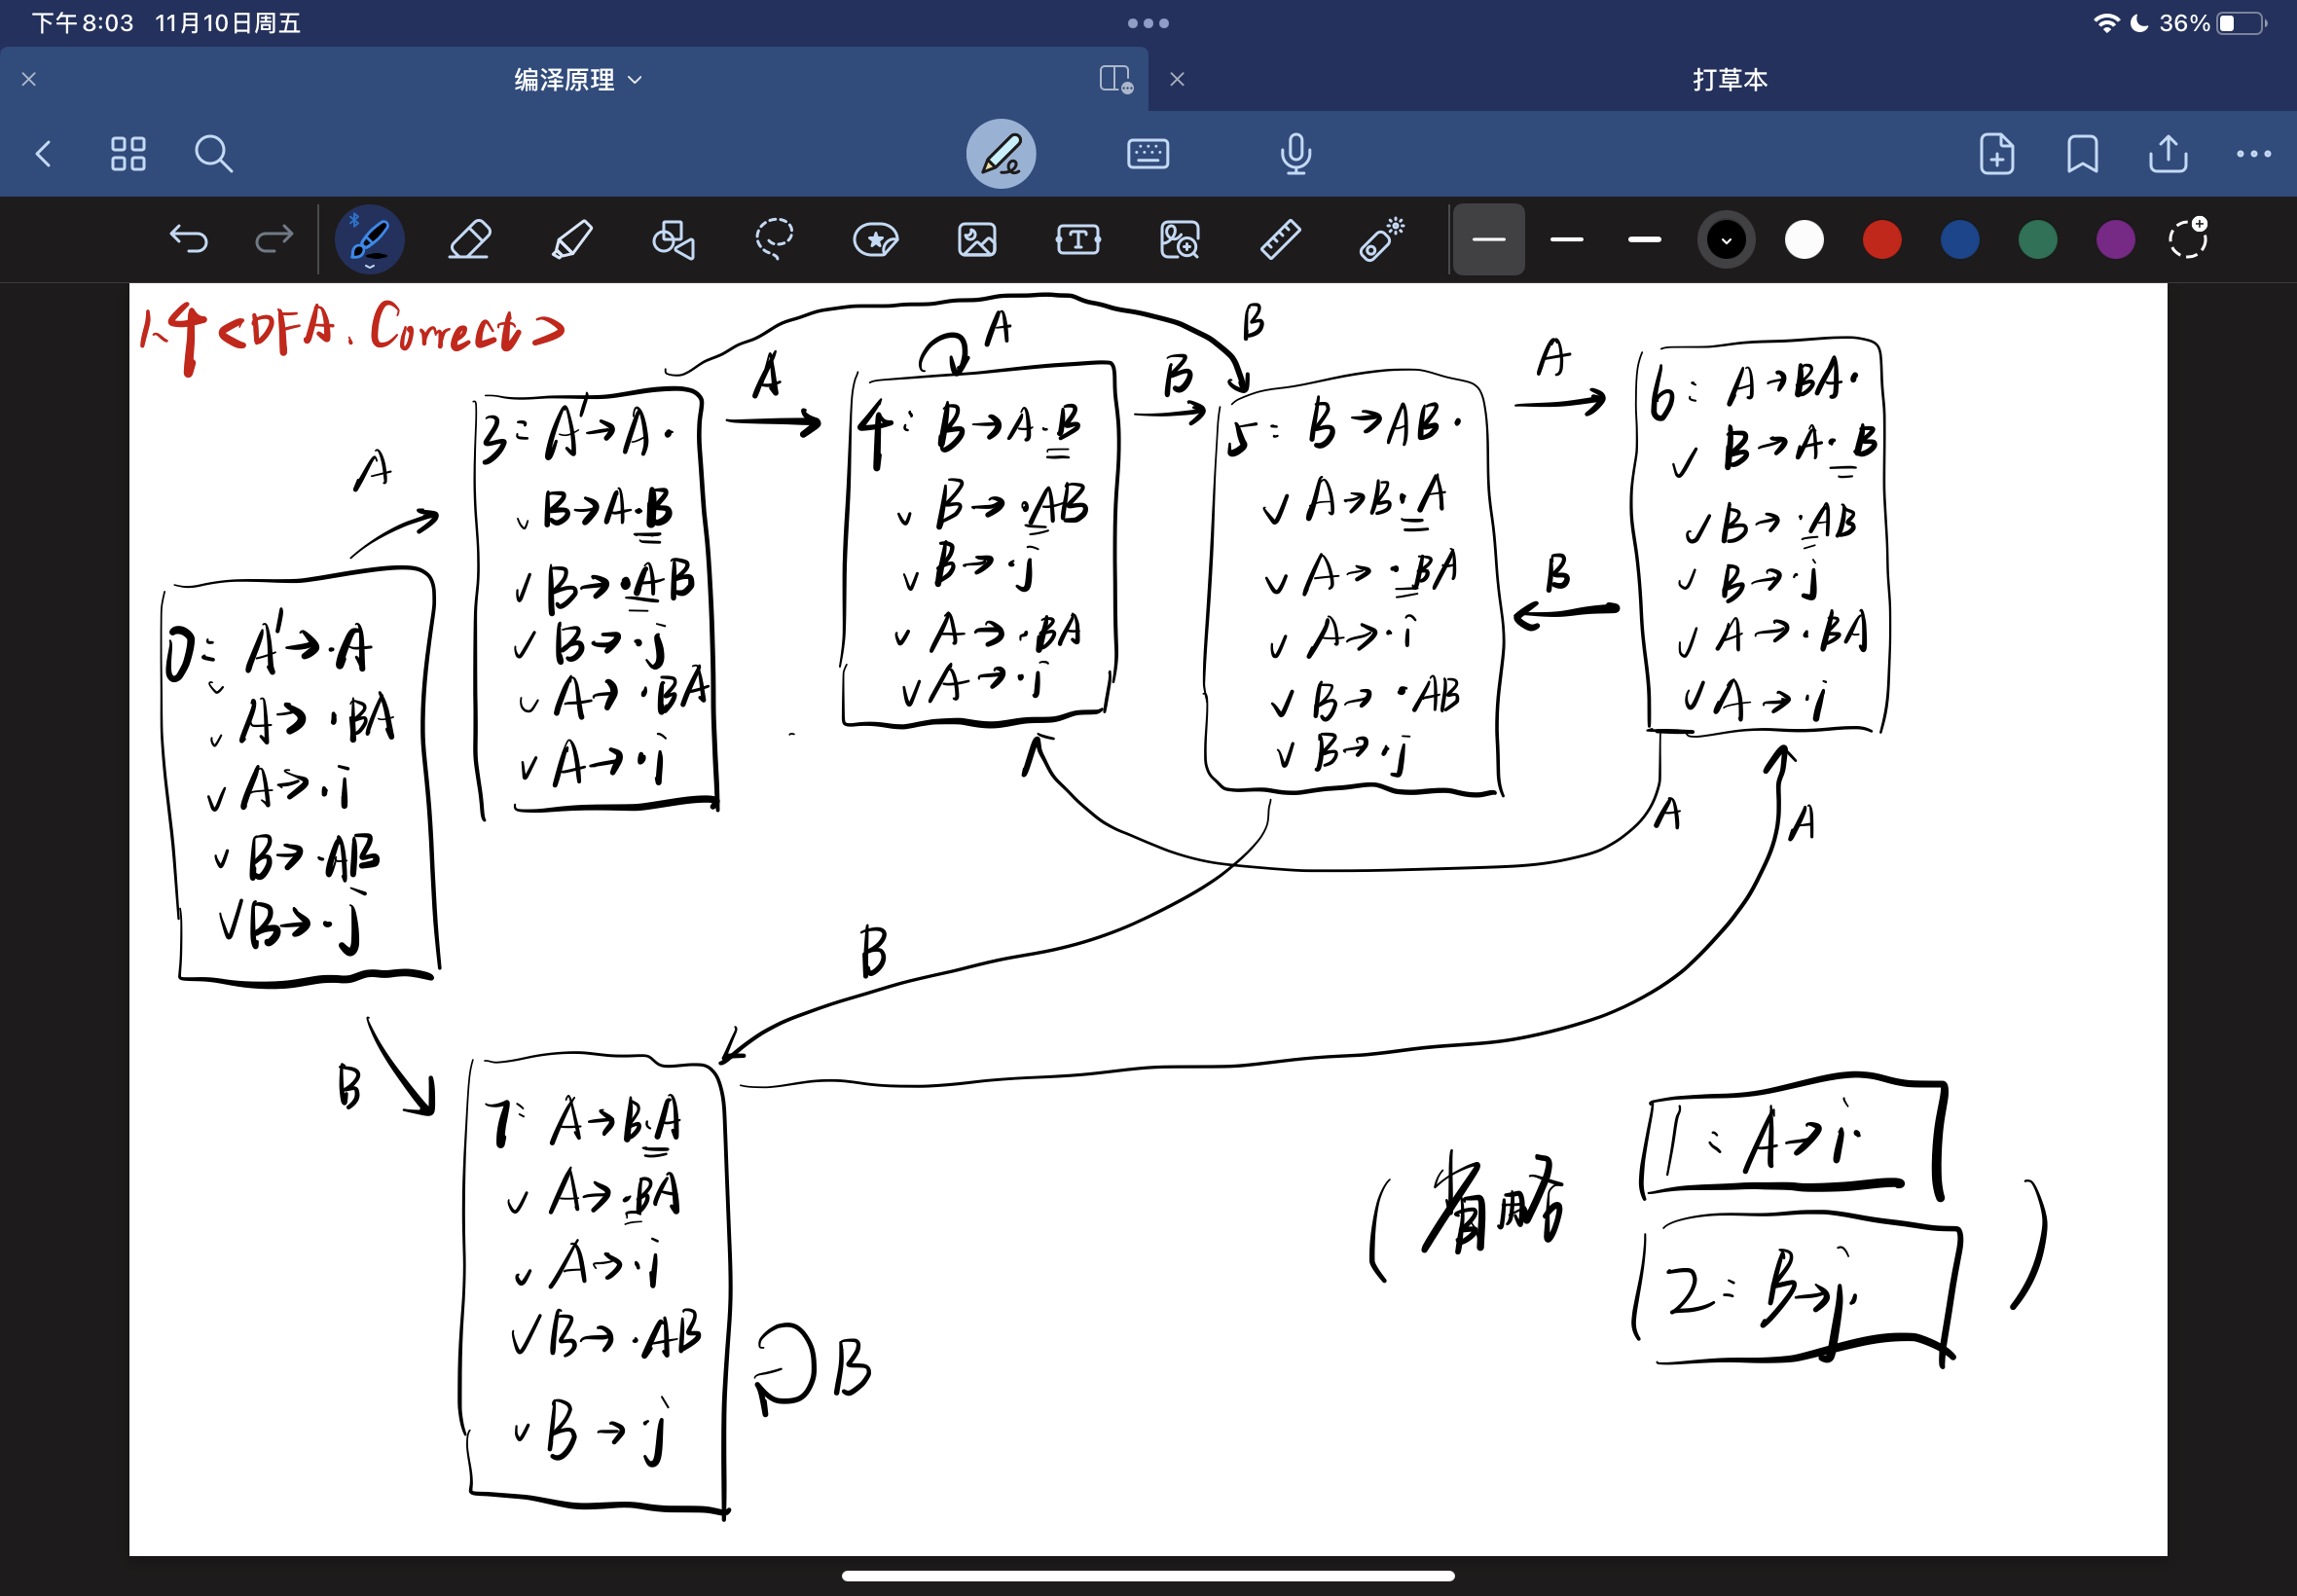 下午8:03 11月10日周五
36%
编泽原理
打草本
1.4 <DFA. Correct>
A
B
A
A
B
A
B
B
A
A
B
B
B
0: A'→·A
A→·BA
A→·i
B→·AB
B→·j
3: A'→A·
B→A·B
B→·AB
B→·j
A→·BA
A→·i
4: B→A·B
B→·AB
B→·j
A→·BA
A→·i
5: B→AB·
A→B·A
A→·BA
A→·i
B→·AB
B→·j
6: A→BA·
B→A·B
B→·AB
B→·j
A→·BA
A→·i
7: A→B·A
A→·BA
A→·i
B→·AB
B→·j
(省略
1: A→i·
2: B→j·
)